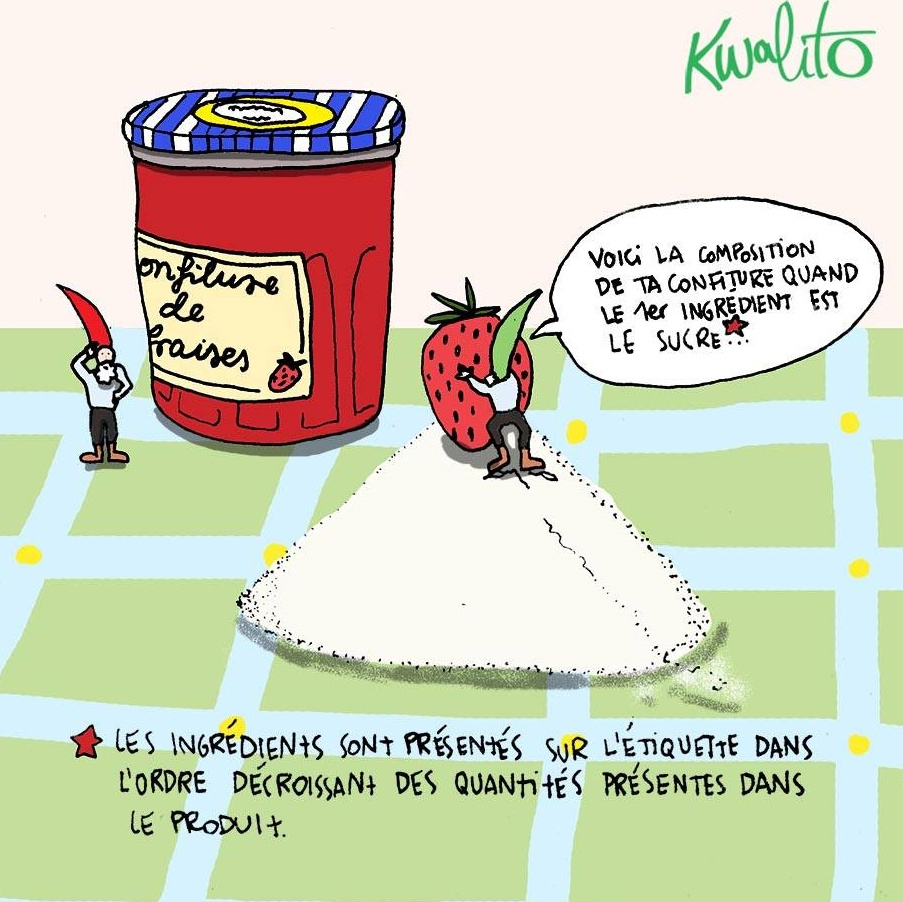 Kwalito
onfiture
de
fraises
VOICI LA COMPOSITION
DE TA CONFITURE QUAND
LE 1er INGREDIENT EST
LE SUCRE...
LES INGRÉDIENTS SONT PRÉSENTÉS SUR L'ÉTIQUETTE DANS
L'ORDRE DÉCROISSANT DES QUANTITÉS PRÉSENTES DANS
LE PRODUIT.